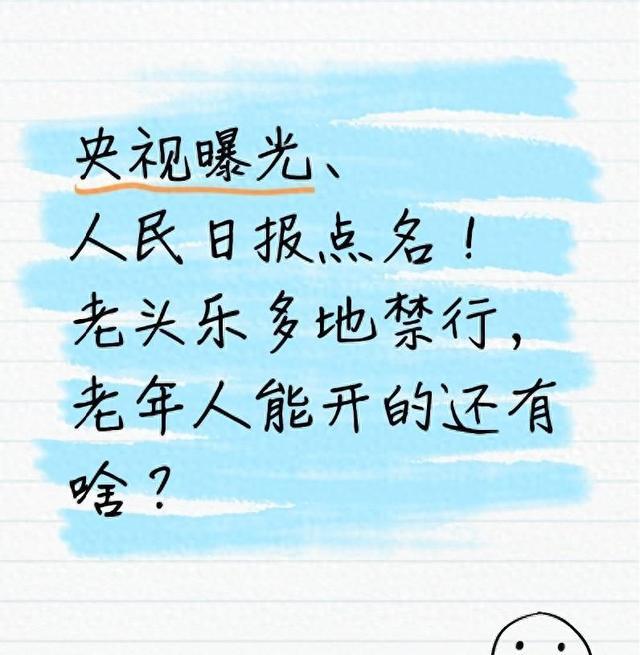 央视曝光、
人民日报点名！
老头乐多地禁行，
老年人能开的还有
啥？